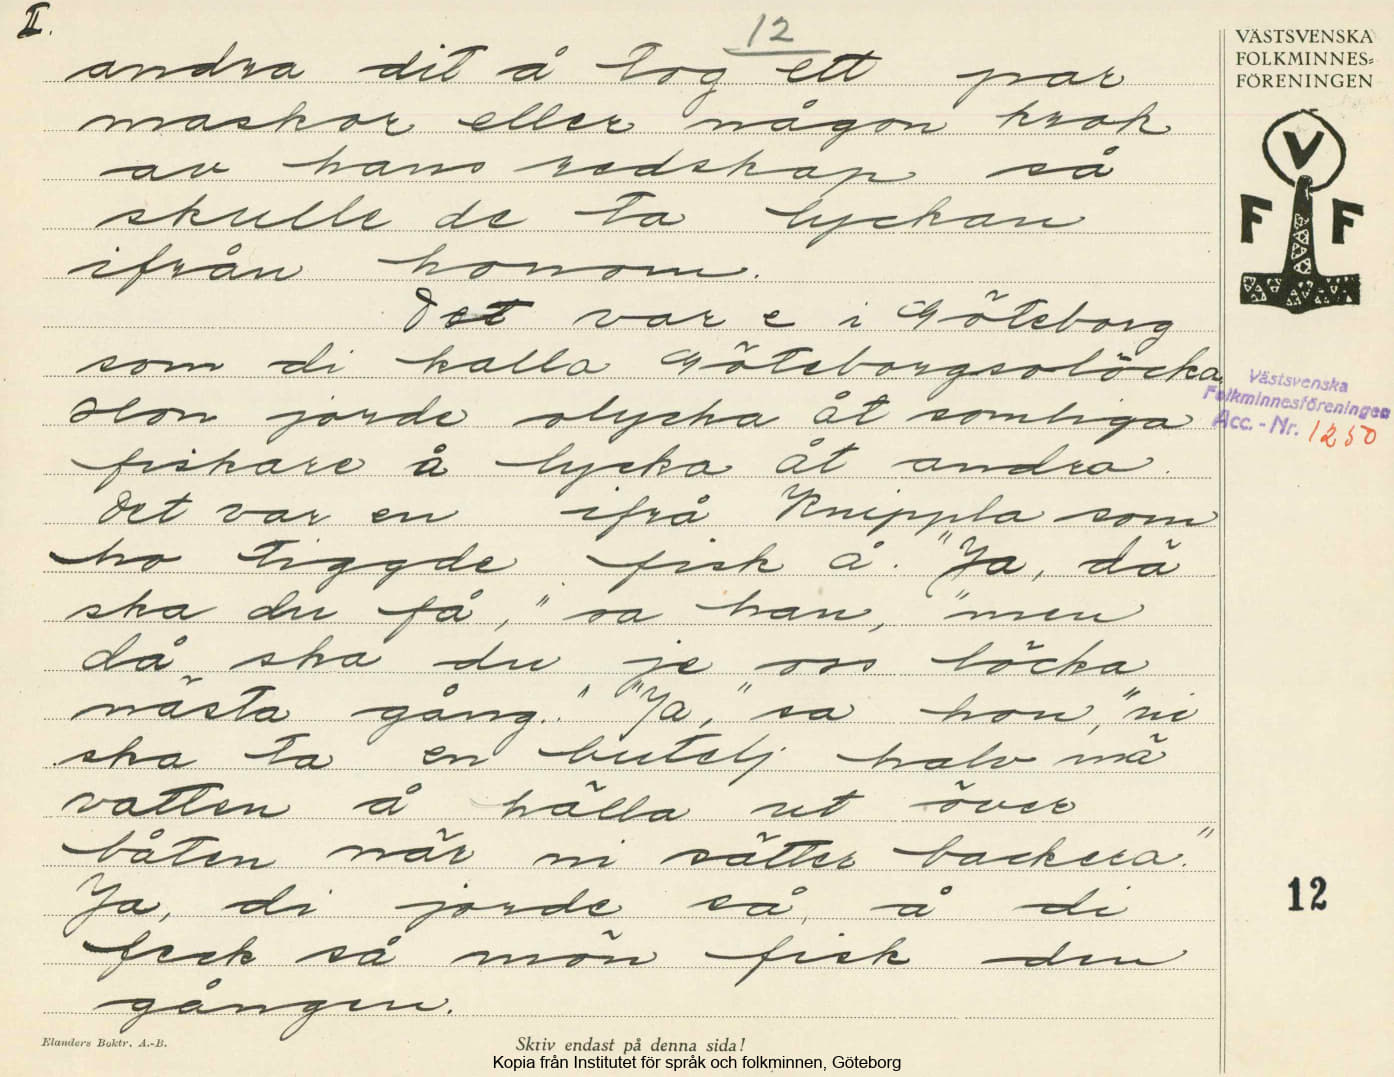 II.
12
andra dit å tog ett par
maskor eller någon krok
av hans redskap så
skulle de ta lyckan
ifrån honom.
Det var e i Göteborg
som di kalla Göteborgsolöcka
Hon jorde olycka åt somliga
fiskare å lycka åt andra.
Det var en ifrå Knippla som
ho tiggde fisk å. "Ja, då
ska du få," sa han, "men
då ska du je oss löcka
nästa gång." "Ja," sa hon, "ni
ska ta en butelj halv mä
vatten å hälla ut över
båten när ni sätter backera."
Ja, di jorde så, å di
feck så mön fisk den
gången.
VÄSTSVENSKA
FOLKMINNES=
FÖRENINGEN
V
F F
Västsvenska
Folkminnesföreningen
Acc. - Nr. 1250
12
Elanders Boktr. A.-B.
Skriv endast på denna sida!
Kopia från Institutet för språk och folkminnen, Göteborg